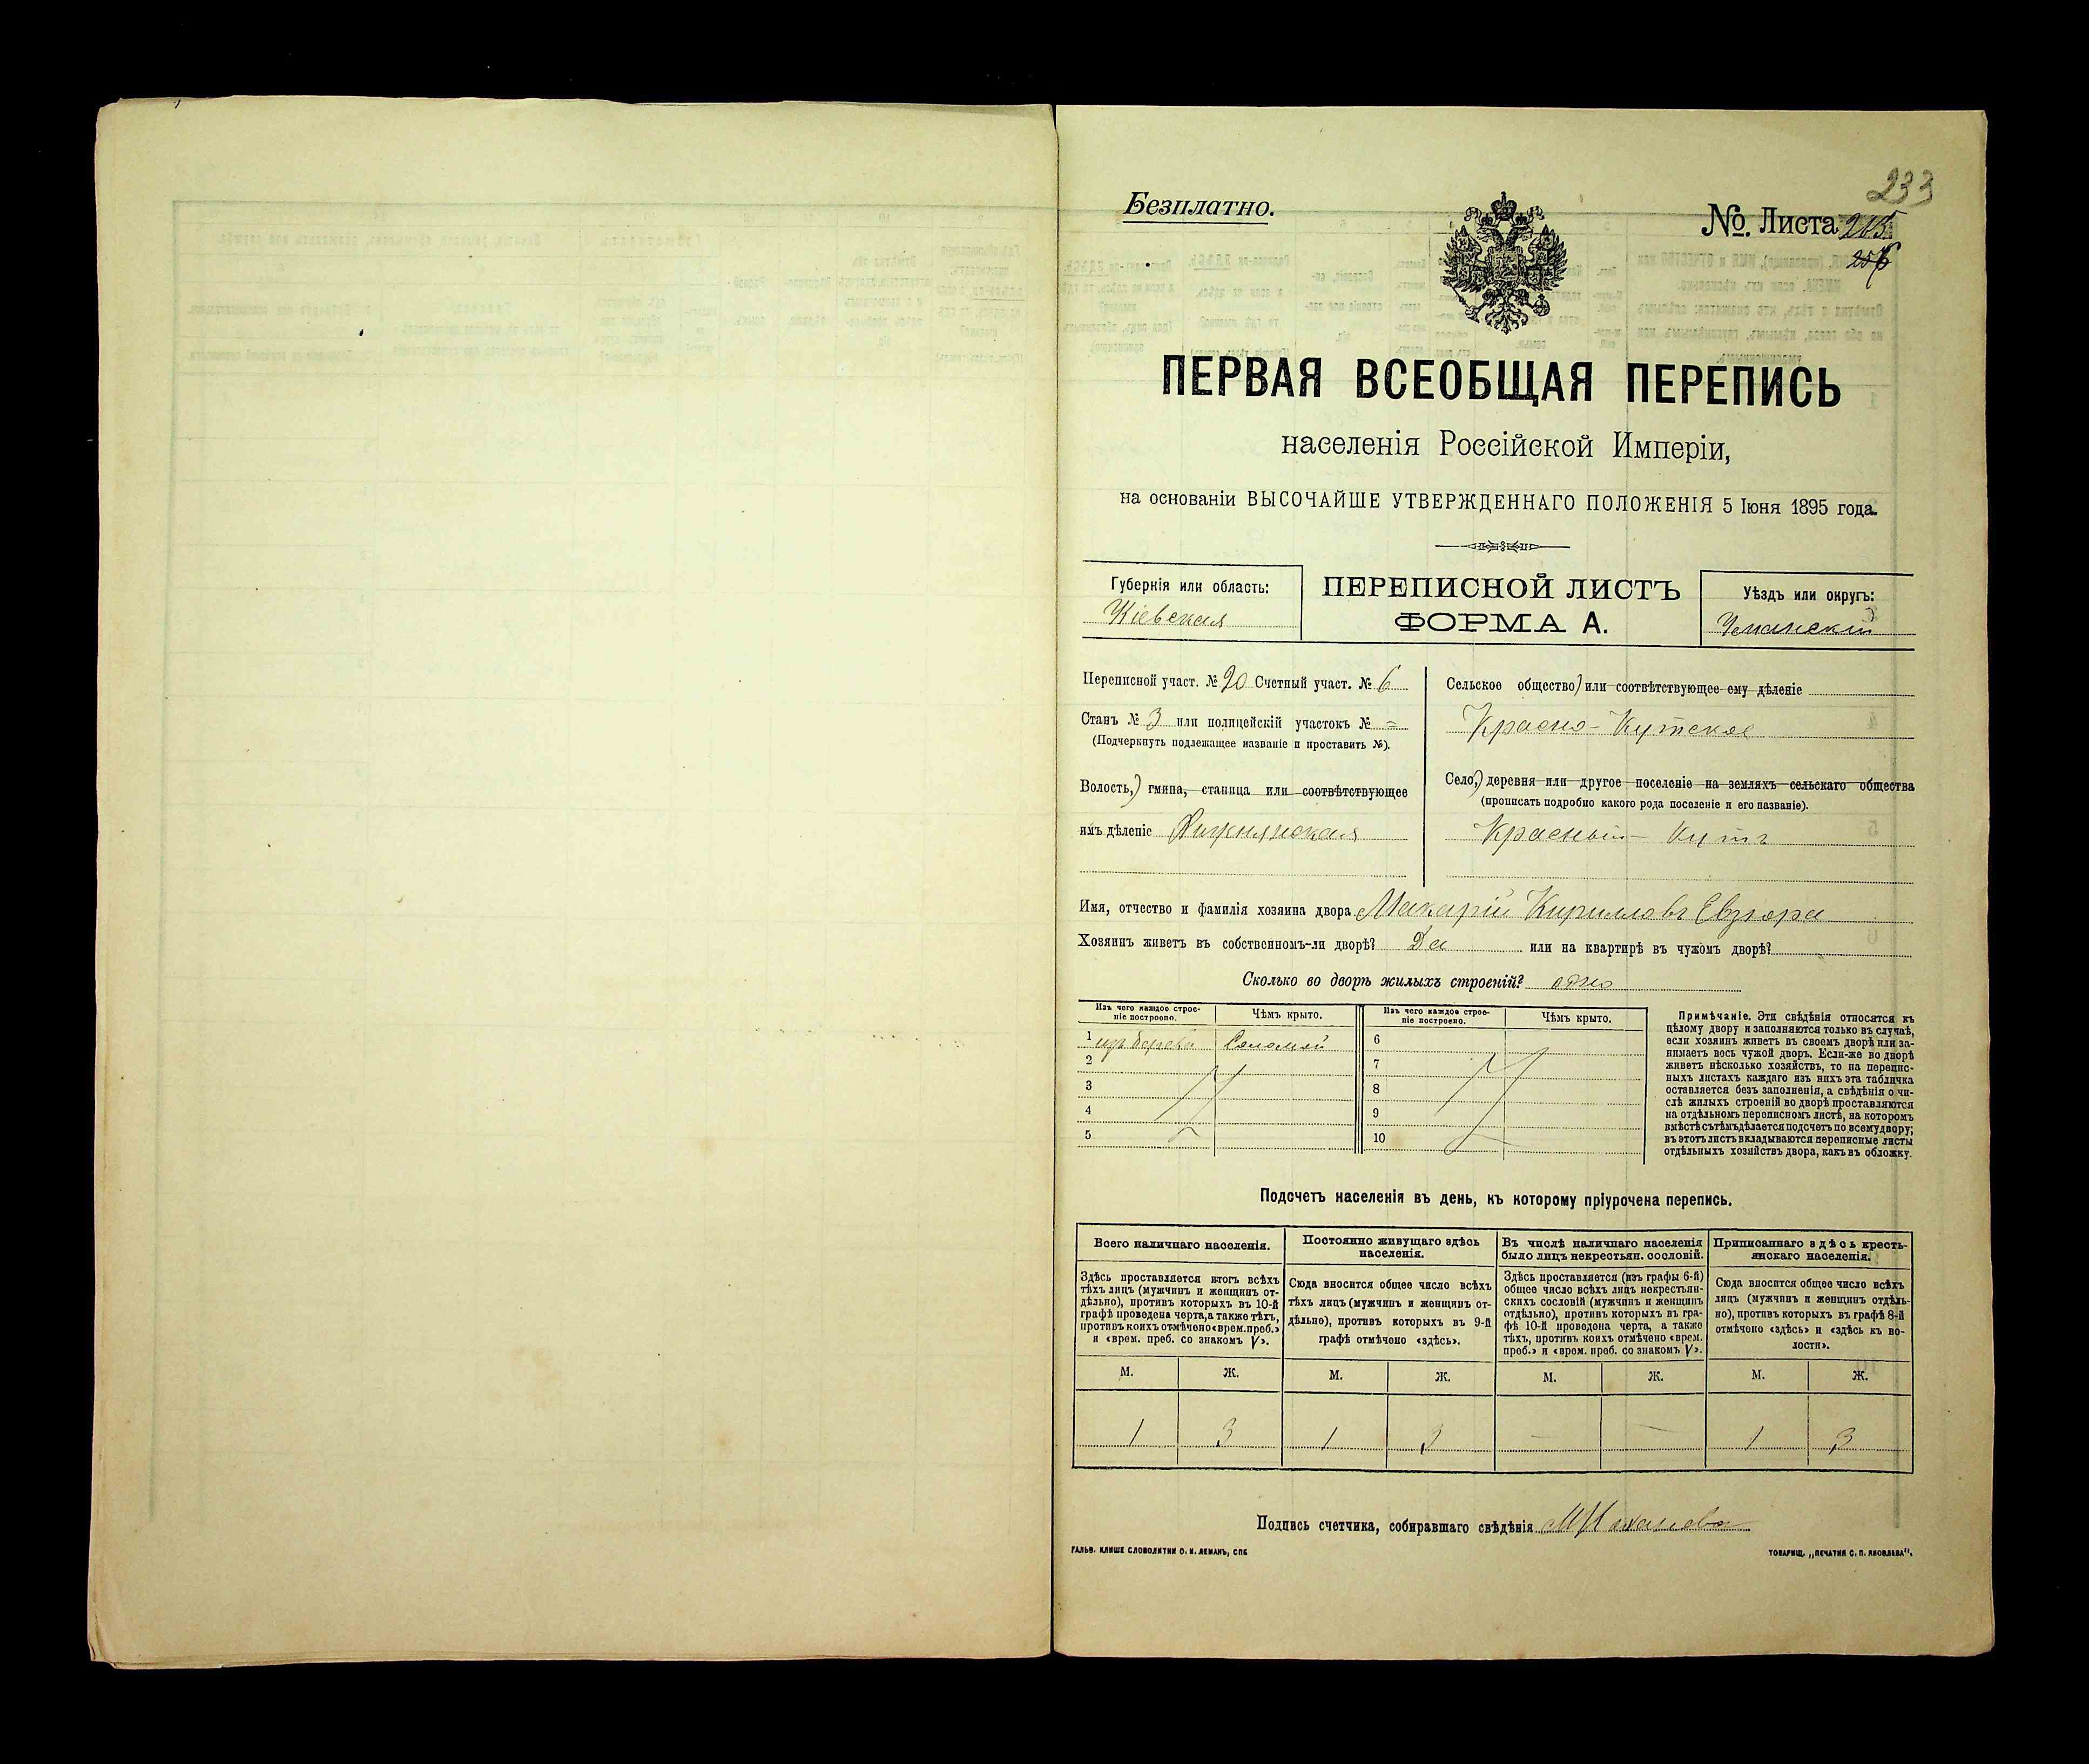 233
Безплатно.
No. Листа 215
256
ПЕРВАЯ ВСЕОБЩАЯ ПЕРЕПИСЬ
населенія Россійской Имперіи,
на основаніи ВЫСОЧАЙШЕ УТВЕРЖДЕННАГО ПОЛОЖЕНІЯ 5 Іюня 1895 года.
Губернія или область:
Кіевская
ПЕРЕПИСНОЙ ЛИСТЪ
ФОРМА А.
Уѣздъ или округъ:
Уманскій
Переписной участ. № 20 Счетный участ. № 6
Станъ № 3 или полицейскій участокъ № =
(Подчеркнуть подлежащее названіе и проставить №).
Волость,) гмина, станица или соотвѣтствующее
имъ дѣленіе
Сельское общество) или соотвѣтствующее ему дѣленіе
Красно-Кутское
Село,) деревня или другое поселеніе на земляхъ сельскаго общества
(прописать подробно какого рода поселеніе и его названіе).
Красный-Кутъ
Имя, отчество и фамилія хозяина двора Макарій Кирилловъ
Хозяинъ живетъ въ собственномъ-ли дворѣ? Да или на квартирѣ въ чужомъ дворѣ?
Сколько во дворѣ жилыхъ строеній? одно
Изъ чего каждое строе-
ніе построено.
Чѣмъ крыто.
Изъ чего каждое строе-
ніе построено.
Чѣмъ крыто.
1 изъ дерева Соломой
2
3
4
5
6
7
8
9
10
Примѣчаніе. Эти свѣдѣнія относятся къ
цѣлому двору и заполняются только въ случаѣ,
если хозяинъ живетъ въ своемъ дворѣ или за-
нимаетъ весь чужой дворъ. Если-же во дворѣ
живетъ нѣсколько хозяйствъ, то на перепис-
ныхъ листахъ каждаго изъ нихъ эта табличка
оставляется безъ заполненія, а свѣдѣнія о чи-
слѣ жилыхъ строеній во дворѣ проставляются
на отдѣльномъ переписномъ листѣ, на которомъ
вмѣстѣ съ тѣмъ дѣлается подсчетъ по всему двору;
въ этотъ листъ вкладываются переписные листы
отдѣльныхъ хозяйствъ двора, какъ въ обложку.
Подсчетъ населенія въ день, къ которому пріурочена перепись.
Всего наличнаго населенія.
Здѣсь проставляется итогъ всѣхъ
тѣхъ лицъ (мужчинъ и женщинъ от-
дѣльно), противъ которыхъ въ 10-й
графѣ проведена черта, а также тѣхъ,
противъ коихъ отмѣчено «врем. преб.»
и «врем. преб. со знакомъ V».
Постоянно живущаго здѣсь
населенія.
Сюда вносится общее число всѣхъ
тѣхъ лицъ (мужчинъ и женщинъ от-
дѣльно), противъ которыхъ въ 9-й
графѣ отмѣчено «здѣсь».
Въ числѣ наличнаго населенія
было лицъ некрестьян. сословій.
Здѣсь проставляется (изъ графы 6-й)
общее число всѣхъ лицъ некрестьян-
скихъ сословій (мужчинъ и женщинъ
отдѣльно), противъ которыхъ въ гра-
фѣ 10-й проведена черта, а также
тѣхъ, противъ коихъ отмѣчено «врем.
преб.» и «врем. преб. со знакомъ V».
Приписаннаго здѣсь кресть-
янскаго населенія.
Сюда вносится общее число всѣхъ
лицъ (мужчинъ и женщинъ отдѣль-
но), противъ которыхъ въ графѣ 8-й
отмѣчено «здѣсь» и «здѣсь къ во-
лости».
М. Ж. М. Ж. М. Ж. М. Ж.
1 3 1 3 — — 1 3
Подпись счетчика, собиравшаго свѣдѣнія
ГАЛЬВ. КЛИШЕ СЛОВОЛИТНИ О. И. ЛЕМАНЪ, СПБ
ТОВАРИЩ. „ПЕЧАТНЯ С. П. ЯКОВЛЕВА".